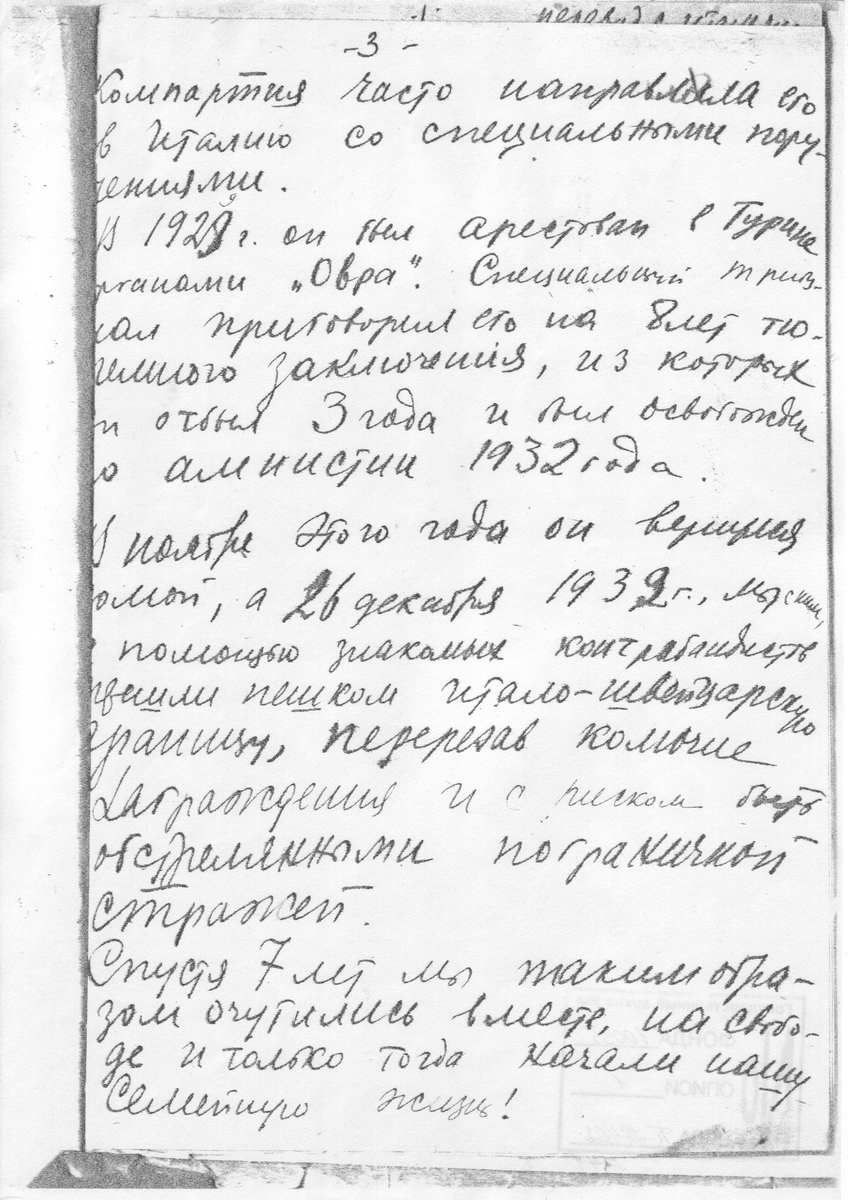 перевод с итальян
-3-
Компартия часто направляла его
в Италию со специальными пору-
чениями.
В 1929 г. он был арестован в Турине
рганами „Овра". Специальный триб-
нал приговорил его на 8 лет тю-
емного заключения, из которых
н отбыл 3 года и был освобожден
о амнистии 1932 года.
В ноябре этого года он вернулся
омой, а 26 декабря 1932 г., мы с ним,
помощью знакомых контрабандистов
решли пешком итало-швейцарскую
границу, перерезав колючие
заграждения и с риском быть
обстрелянными пограничной
стражей.
Спустя 7 лет мы таким обра-
зом очутились вместе, на свобо-
де и только тогда начали нашу
семейную жизнь!
ФОНДА
ОПИСИ